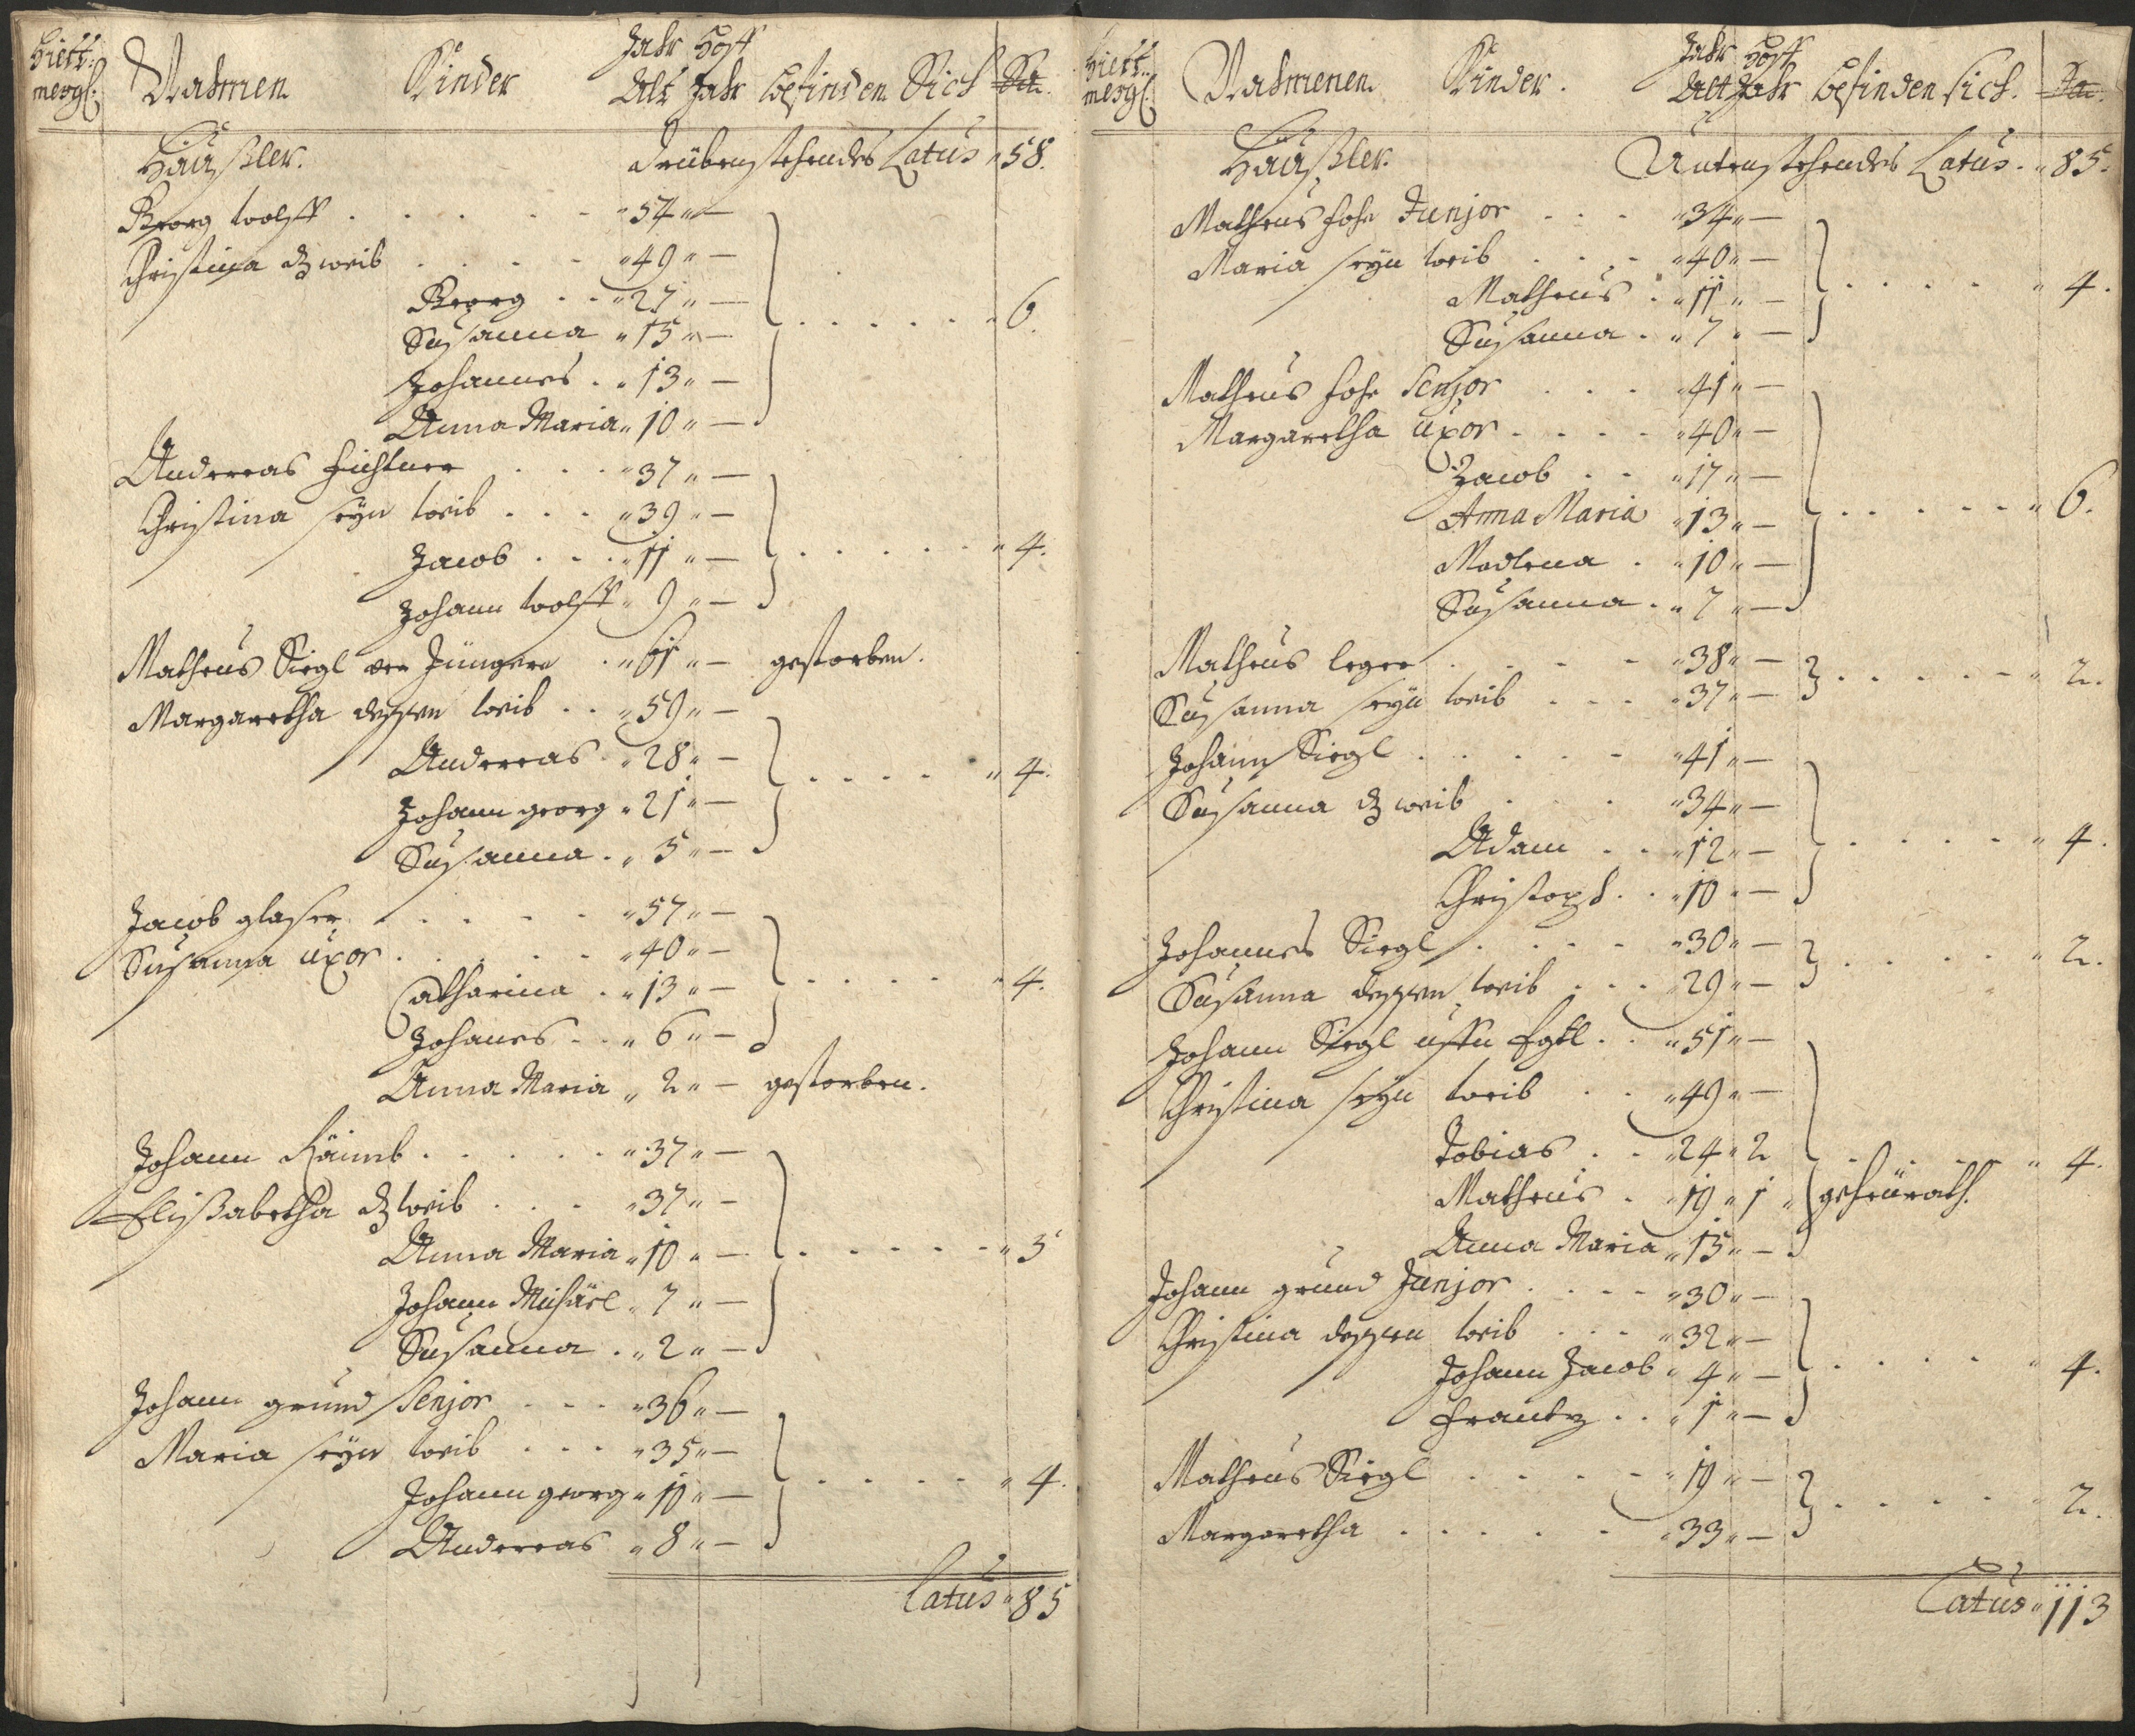 Nahmen Kinder Jahr Alt Hoff Jahr befinden Sich Sa.
Häußler. Drübenstehendes Latus „ 58.
Georg Wolff . . . . . „ 54 „ —
Christina d. weib . . . . „ 49 „ —
Georg . . „ 27 „ —
Susanna „ 15 „ — . . . . . „ 6.
Johannes . „ 13 „ —
Anna Maria „ 10 „ —
Anderreas Fichtner . . . „ 37 „ —
Christina seyn weib . . . „ 39 „ —
Jacob . . . „ 11 „ — . . . . . „ 4.
Johann Wolff „ 9 „ —
Matheus Siegl der Jüngere . „ 61 „ — gestorben.
Margaretha dessen weib . . „ 59 „ —
Anderreas . „ 28 „ — . . . . „ 4.
Johann georg „ 21 „ —
Susanna . „ 5 „ —
Jacob glaser . . . . „ 57 „ —
Susanna uxor . . . . . „ 40 „ —
Catharina . „ 13 „ — . . . . . „ 4.
Johanes . . „ 6 „ —
Anna Maria „ 2 „ — gestorben.
Johann . . . . . „ 37 „ —
Elißabetha d. weib . . . „ 37 „ —
Anna Maria „ 10 „ — . . . . . „ 5
Johann Michäel „ 7 „ —
Susanna . „ 2 „ —
Johann grund Senjor . . . „ 36 „ —
Maria seyn weib . . . „ 35 „ —
Johann georg „ 10 „ — . . . . . „ 4.
Anderreas „ 8 „ —
Latus „ 85
Nahmenen Kinder. Jahr Alt Hoff Jahr befinden sich. Sa.
Häußler. Untenstehendes Latus . „ 85.
Matheus Junjor . . . „ 34 „ —
Maria seyn weib . . . „ 40 „ —
Matheus . „ 11 „ — . . . . „ 4.
Susanna . „ 7 „ —
Matheus Senjor . . . „ 41 „ —
Margaretha uxor . . . . „ 40 „ —
Jacob . . „ 17 „ —
Anna Maria „ 13 „ — . . . . . „ 6.
Madlena . „ 10 „ —
Susanna . „ 7 „ —
Matheus leger . . . . „ 38 „ —
Susanna seyn weib . . . „ 37 „ — . . . . . „ 2.
Johann Siegl . . . . . „ 41 „ —
Susanna d. weib . . . „ 34 „ —
Adam . . „ 12 „ — . . . . . „ 4.
Christoph . . „ 10 „ —
Johannes Siegl . . . . „ 30 „ —
Susanna dessen weib . . . „ 29 „ — . . . . „ 2.
Johann Siegl . . „ 51 „ —
Christina seyn weib . . „ 49 „ —
Tobias . . „ 24 „ 2 . . . . . „ 4.
Matheus . „ 19 „ 1 „ geheurath.
Anna Maria „ 15 „ —
Johann grund Junjor . . . . „ 30 „ —
Christina dessen weib . . . „ 32 „ —
Johann Jacob „ 4 „ — . . . . „ 4.
Frantz . . „ 1 „ —
Matheus Siegl . . . . „ 19 „ —
Margaretha . . . . . „ 33 „ — . . . . . „ 2.
Latus „ 113